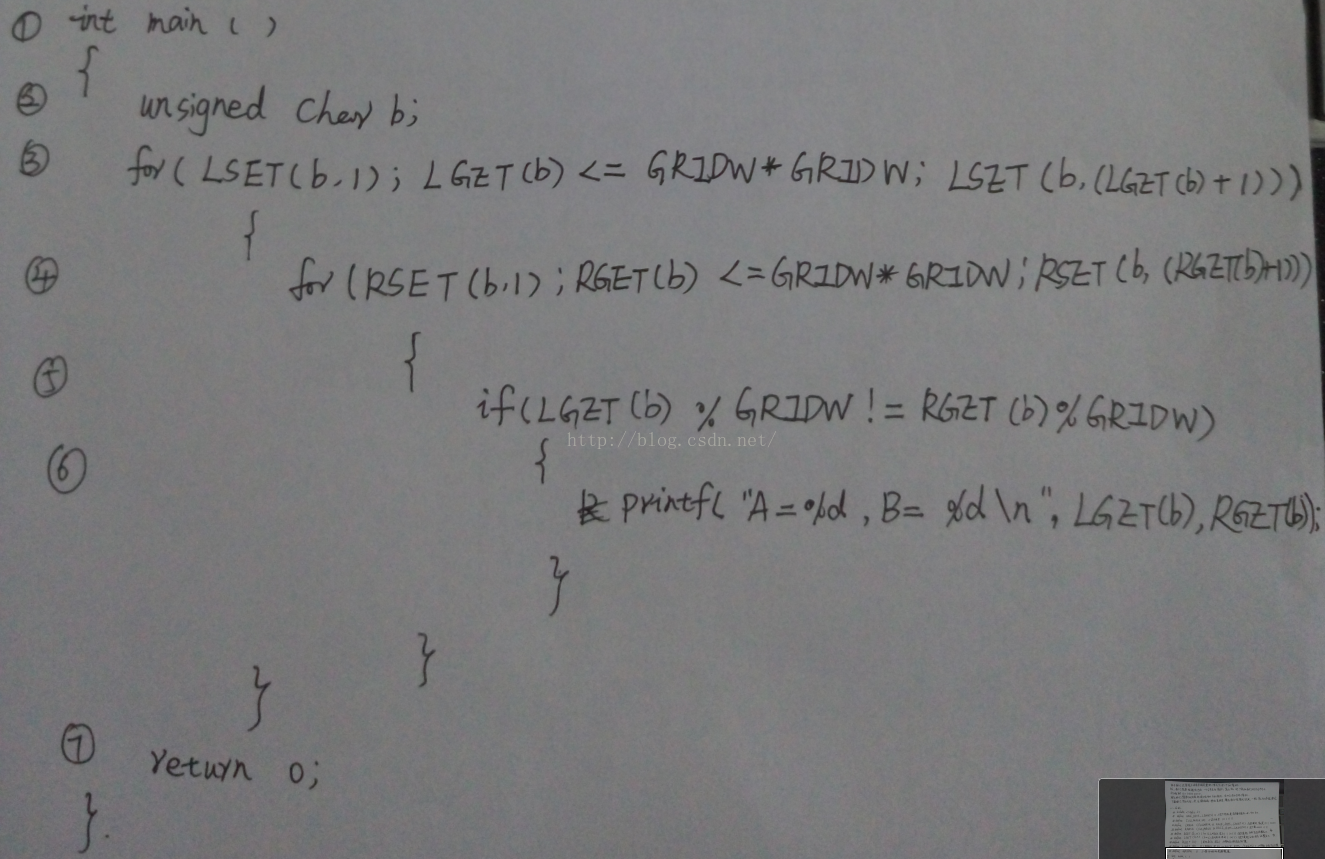 ① int main ( )
{
② unsigned Char b;
③ for( LSET(b,1); LGZT(b) <= GRIDW*GRIDW; LSZT (b,(LGZT(b)+1)))
{
④ for (RSET(b,1); RGET(b) <=GRIDW*GRIDW; RSZT(b, (RGZT(b)+1)))
⑤ {
if(LGZT(b) % GRIDW != RGZT(b)%GRIDW)
http://blog.csdn.net/
⑥ {
printf( "A=%d, B= %d\n", LGZT(b), RGZT(b));
}
}
}
⑦ return 0;
}.